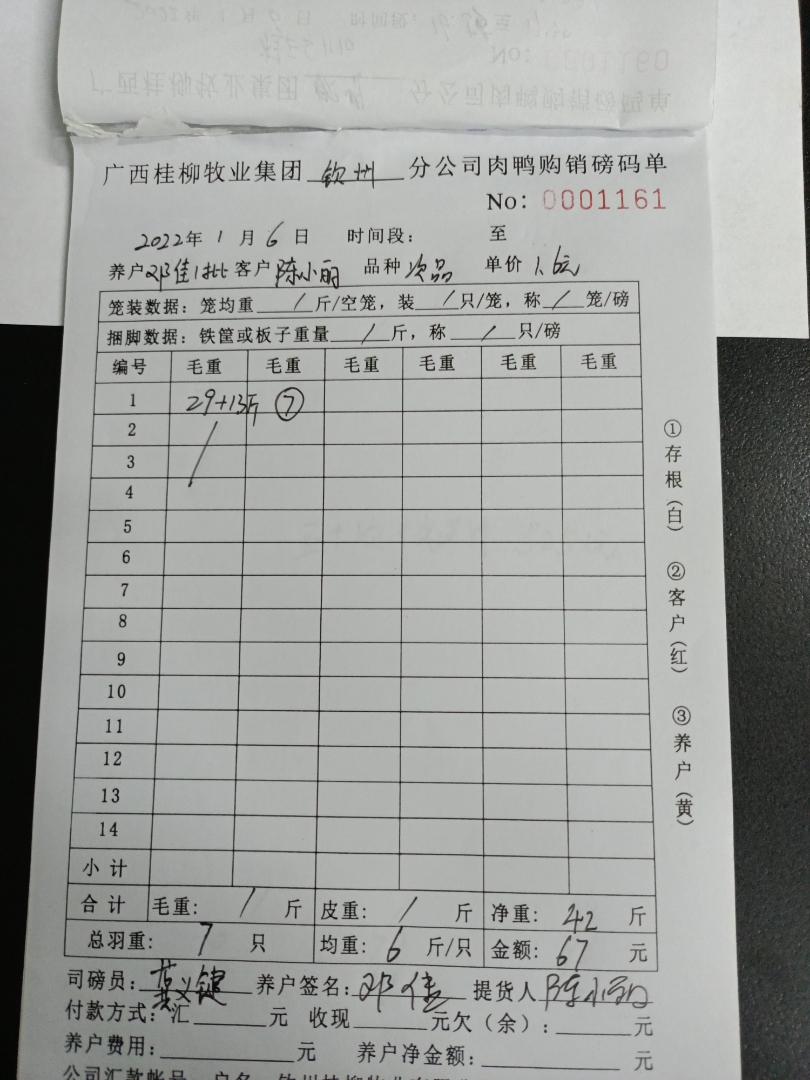 广西桂柳牧业集团 钦州 分公司肉鸭购销磅码单
No: 0001161
2022年 1 月 6 日 时间段: 至
养户 邓佳1批 客户 陈小丽 品种 次品 单价 1.6元
笼装数据: 笼均重 / 斤/空笼, 装 / 只/笼, 称 / 笼/磅
捆脚数据: 铁筐或板子重量 / 斤, 称 / 只/磅
编号 毛重 毛重 毛重 毛重 毛重 毛重
1 29+13斤 ⑦
2 /
3
4
5
6
7
8
9
10
11
12
13
14
小计
合计 毛重: / 斤 皮重: / 斤 净重: 42 斤
总羽重: 7 只 均重: 6 斤/只 金额: 67 元
司磅员: 义键 养户签名: 邓佳 提货人 陈小丽
付款方式: 汇 元 收现 元欠(余): 元
养户费用: 元 养户净金额: 元
公司汇款帐号
①存根(白) ②客户(红) ③养户(黄)